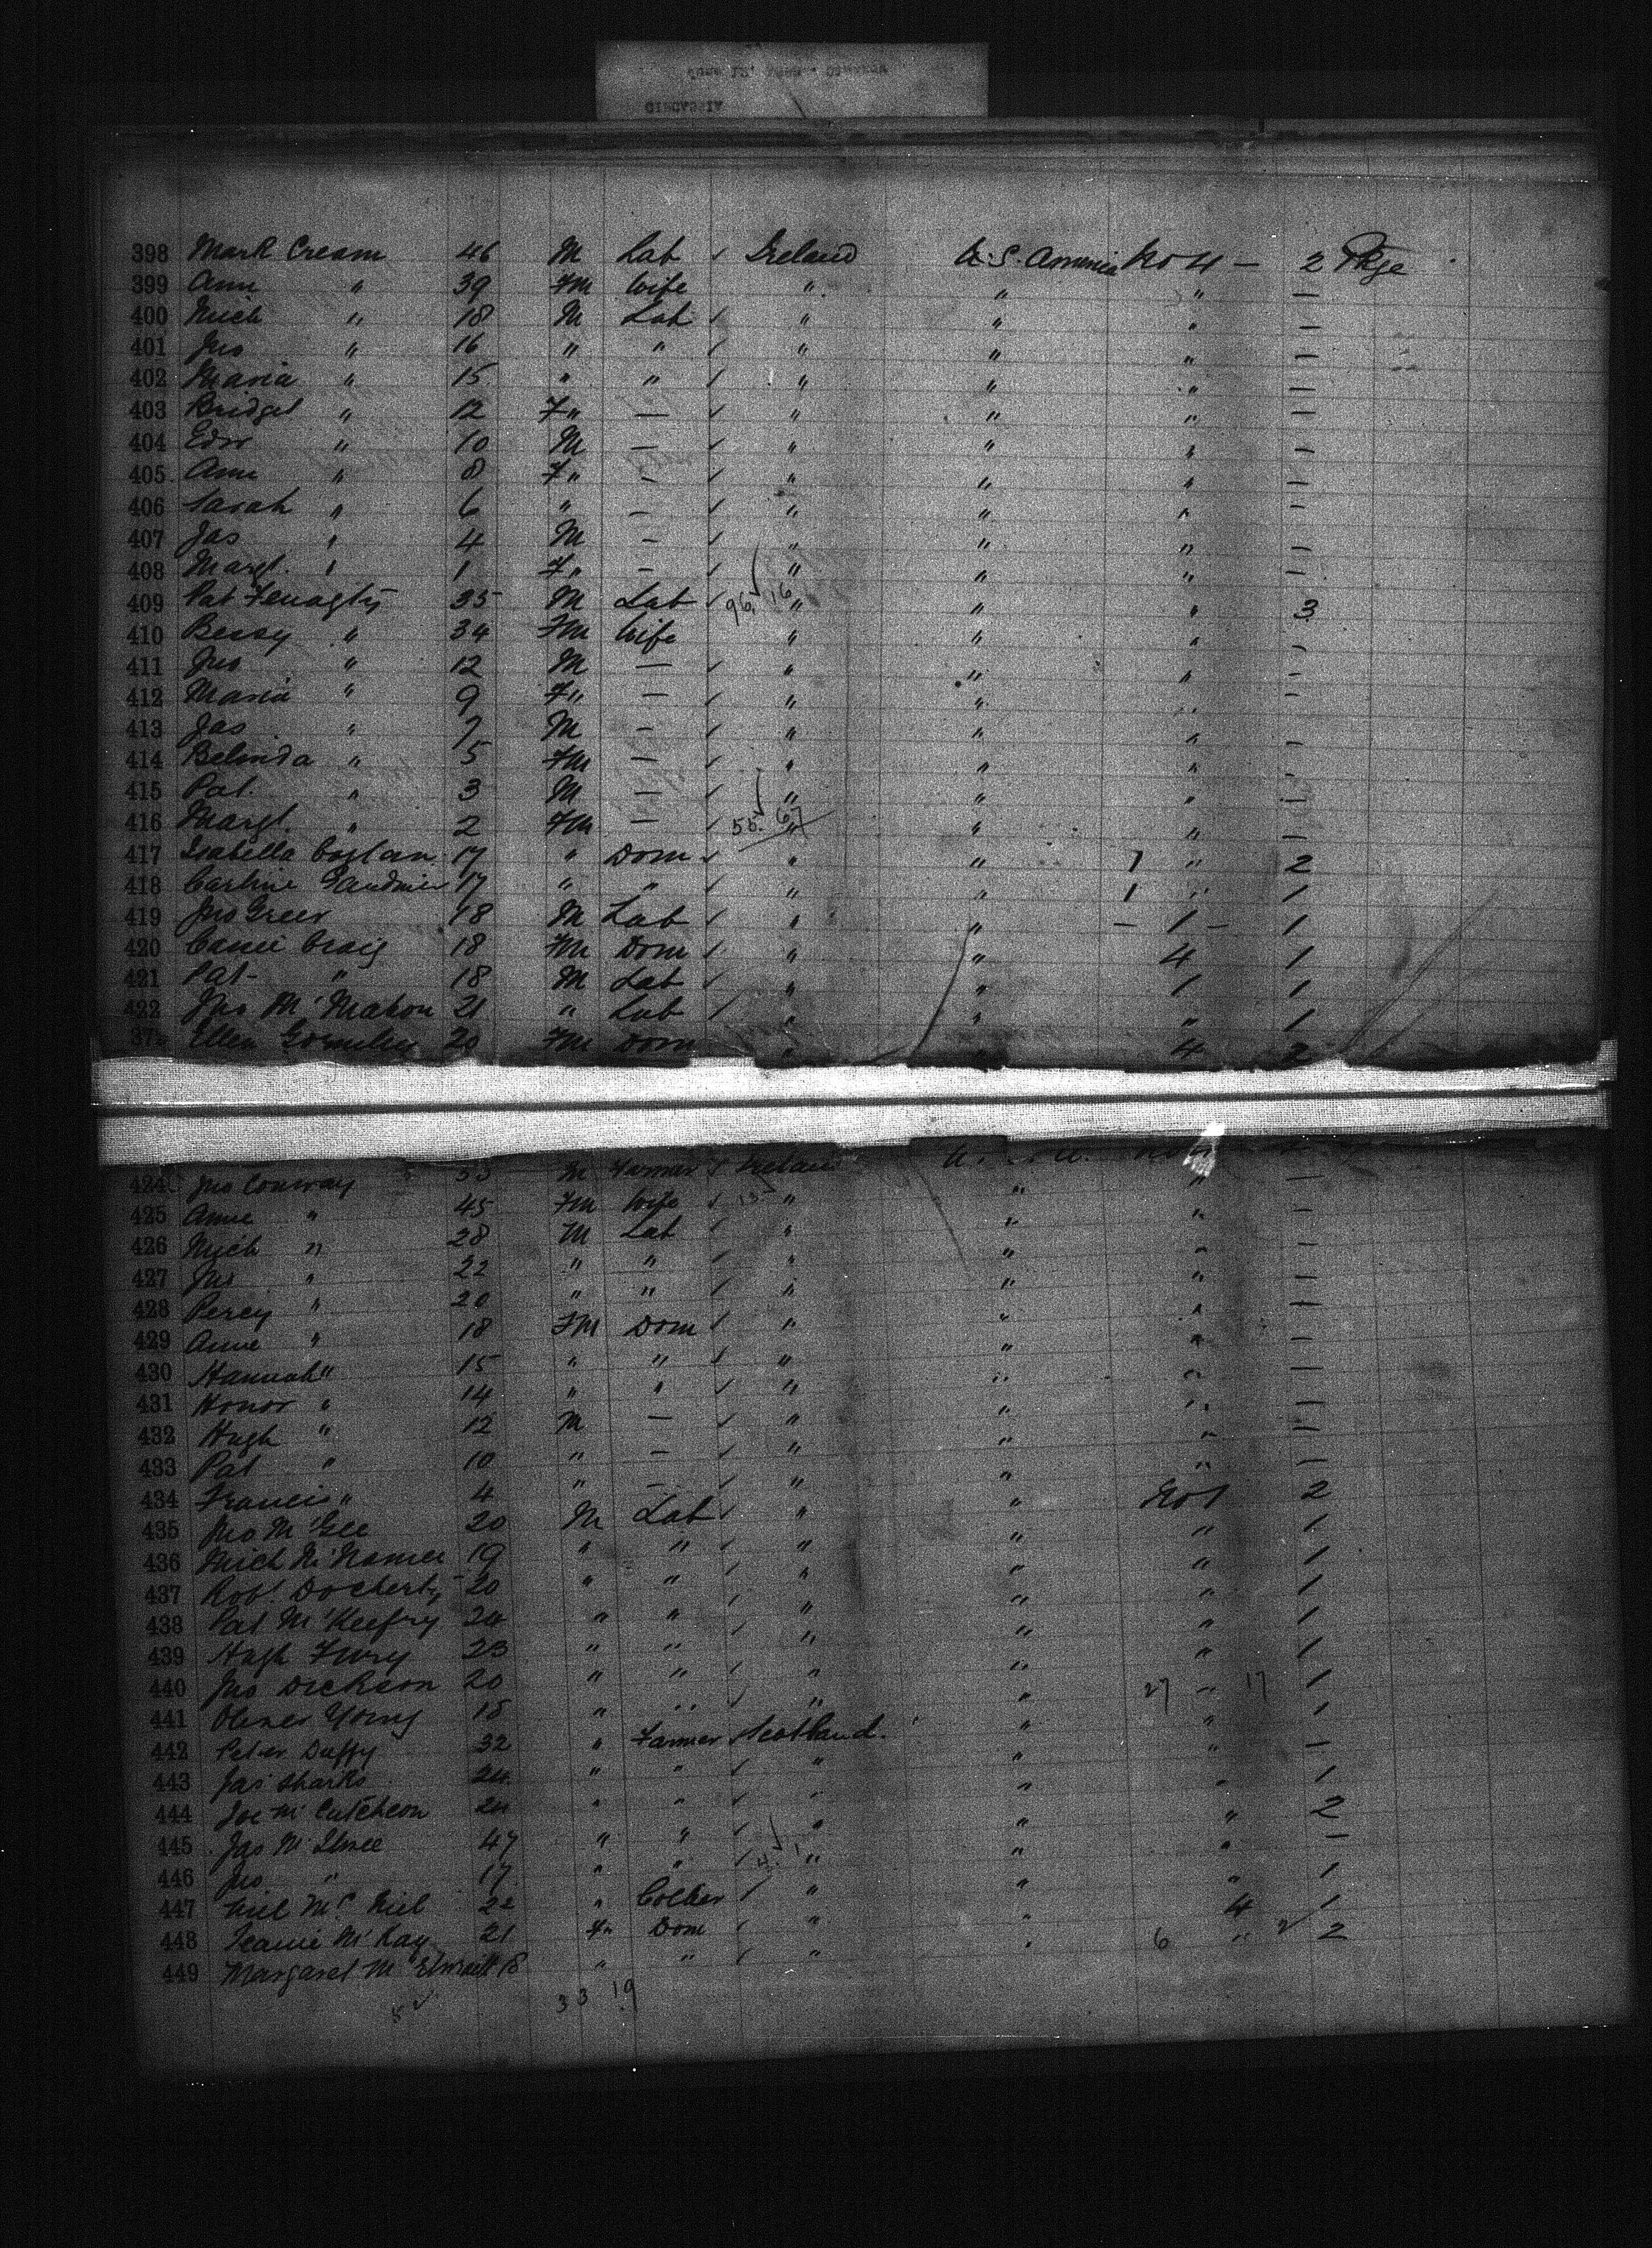 CIRCASSIA
398 Mark Cream 46 M Lab ✓ Ireland U.S. America No 4 — 2 Pkge
399 Ann " 39 Fm Wife " " " —
400 Mich " 18 M Lab ✓ " " " —
401 Jno " 16 " " ✓ " " " —
402 Maria " 15 " " ✓ " " " —
403 Bridget " 12 F" — ✓ " " " —
404 Edw " 10 M — ✓ " " " —
405 Ann " 8 F" — ✓ " " " —
406 Sarah " 6 " — ✓ " " " —
407 Jas " 4 M — ✓ " " " —
408 Margt. " 1 F" — ✓ " " " —
409 Pat Fenaghty 35 M Lab ✓ 96 16 " " " 3
410 Bessy " 34 Fm Wife " " " —
411 Jno " 12 M — ✓ " " " —
412 Maria " 9 F" — ✓ " " " —
413 Jas " 7 M — ✓ " " " —
414 Belinda " 5 Fm — ✓ " " " —
415 Pat. " 3 M — ✓ " " " —
416 Margt. " 2 Fm — ✓ 55. 67 " " " —
417 Isabella Coslan 17 " Dom ✓ " " 1 " 2
418 17 " " ✓ " " 1 " 1
419 Jno Greer 18 M Lab ✓ " " — 1 — 1
420 Cassie Craig 18 Fm Dom ✓ " " 4 1
421 Pat " 18 M Lab ✓ " " 1 1
422 Jno McMahon 21 " Lab ✓ " " " 1
Ellen Gormley 20 Fm Dom " " 4 2
424 Jno Conway M Farmer ✓ Ireland —
425 Anne " 45 Fm Wife ✓ 13 " " " —
426 Mich " 28 M Lab ✓ " " " —
427 Jno " 22 " " ✓ " " " —
428 Percy " 20 " " ✓ " " " —
429 Anne " 18 Fm Dom ✓ " " " —
430 Hannah " 15 " " ✓ " " " —
431 Honor " 14 " " ✓ " " " —
432 Hugh " 12 M — ✓ " " " —
433 Pat " 10 " — ✓ " " " —
434 Francis " 4 " — ✓ " " No 1 2
435 Jno McGee 20 M Lab ✓ " " " 1
436 Mich McNamee 19 " " ✓ " " " 1
437 Robt. Docherty 20 " " ✓ " " " 1
438 Pat McKeefry 24 " " ✓ " " " 1
439 Hugh Fury 23 " " ✓ " " " 1
440 Jno Dickson 20 " " ✓ " " 27 — 17 1
441 Oliver Young 18 " " ✓ " " " 1
442 Peter Duffy 32 " Farmer ✓ Scotland. " " —
443 Jas Sharks 24 " " ✓ " " " 1
444 Joe McCutcheon 24 " " ✓ " " " 2
445 Jas 47 " " ✓ " " " —
446 Jno " 17 " " ✓ 4. 1 " " " 1
447 Niel McNiel 22 " Collier ✓ " " 4 1
448 Jeanie McKay 21 F" Dom ✓ " " 6 " 2
449 Margaret 18 " " ✓ "
33 19